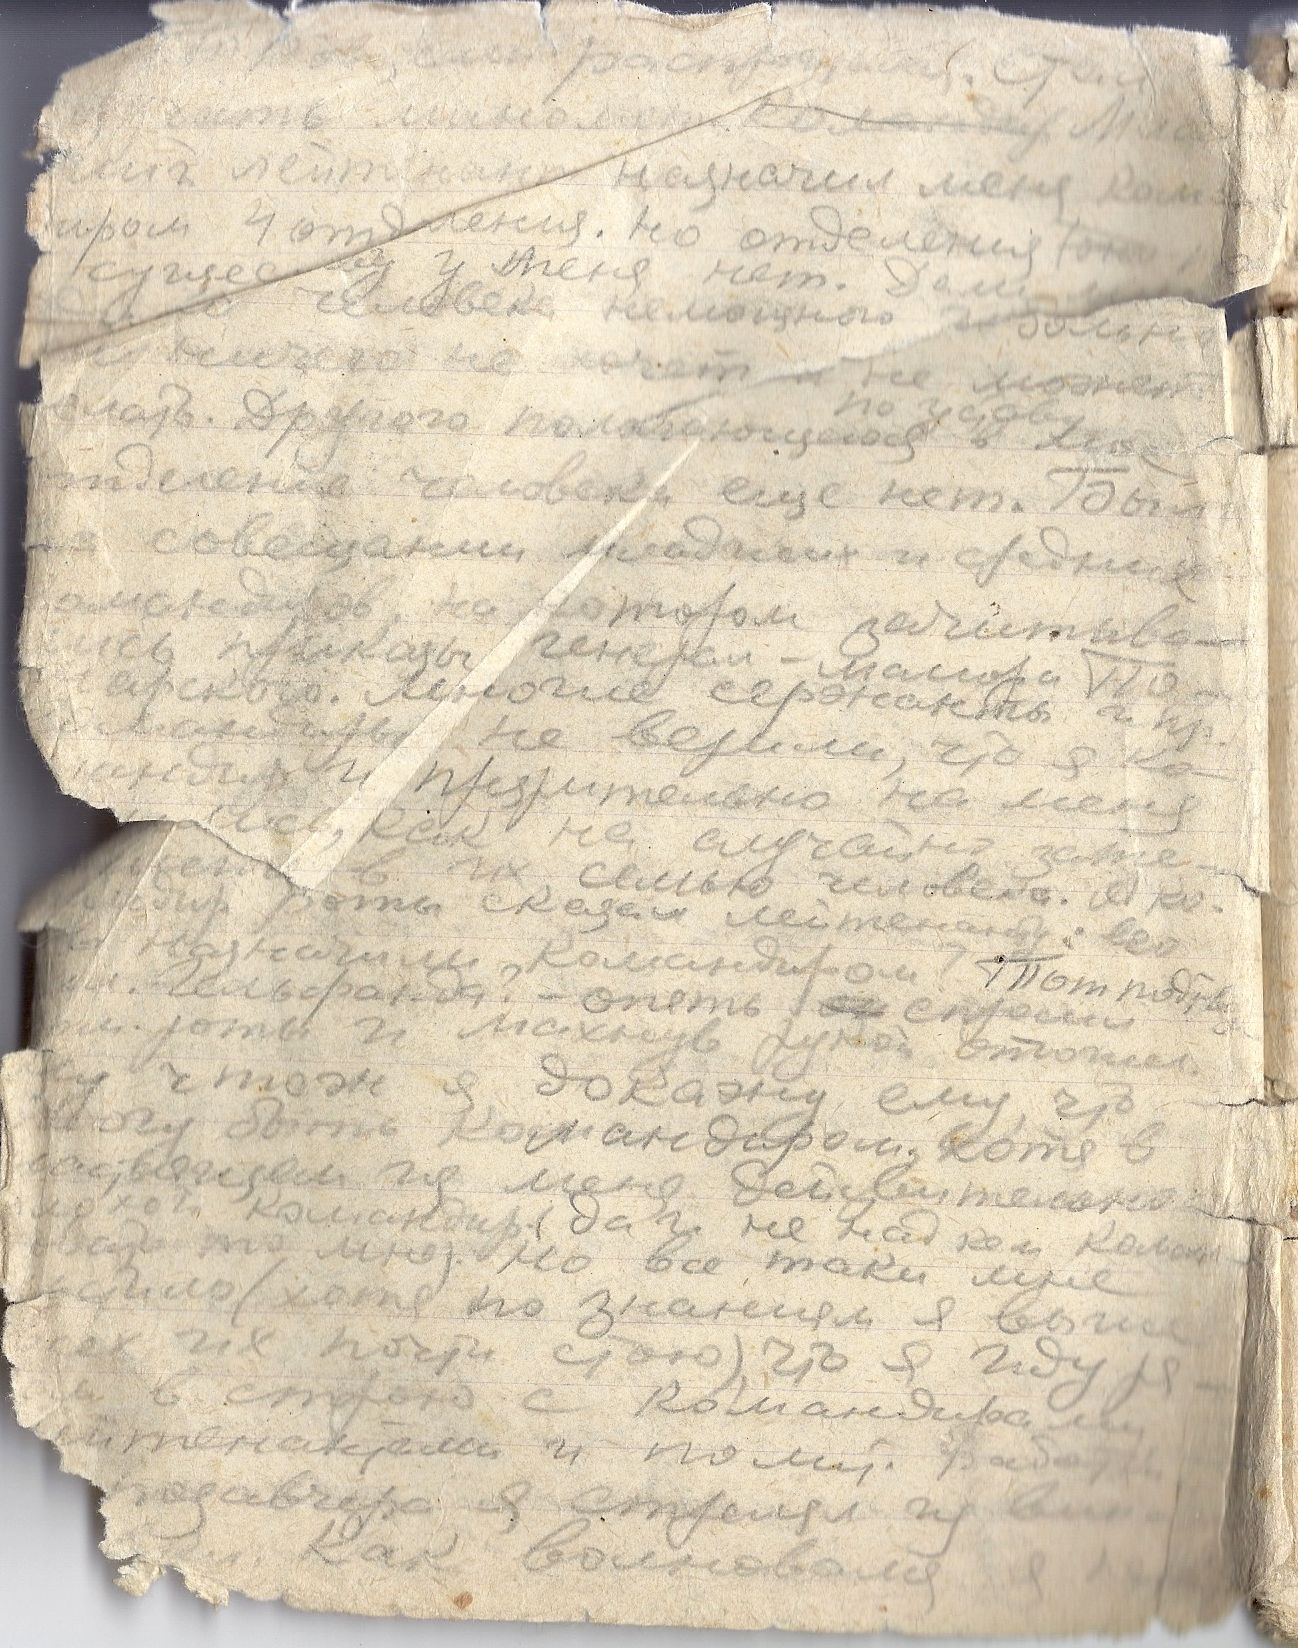 распро
чить миномет. Команду Мла-
ший лейтенант назначил меня кома
иром 4 отделения. Но отделения
существу у меня нет. Дали
человека немощного и больн
ничего не хочет и не может
елать. Другого полагающегося по уставу в мое
отделение человека еще нет. Был
на совещании младших и средних
командиров, на котором зачитыва-
лись приказы генерал-майора По-
жарского. Многие сержанты и пр.
командиры не верили, что я ко-
мандир и презрительно на меня
как на случайно зате-
в их семью человека. А ко-
мандир роты сказал лейтенанту: его
назначили командиром? Тот подтвер
Гельфанда? - опять спросил
роты и махнув рукой отошел.
Ну что ж я докажу ему, что
могу быть командиром, хотя в
настоящем из меня действительно
плохой командир (да и не над кем коман
довать то мне). Но все таки мне
(хотя по знаниям я выше
всех их почти стою) что я иду ря-
в строю с командирами
лейтенантами и полит. работн
позавчера я стрелял из вин-
Как волновался я